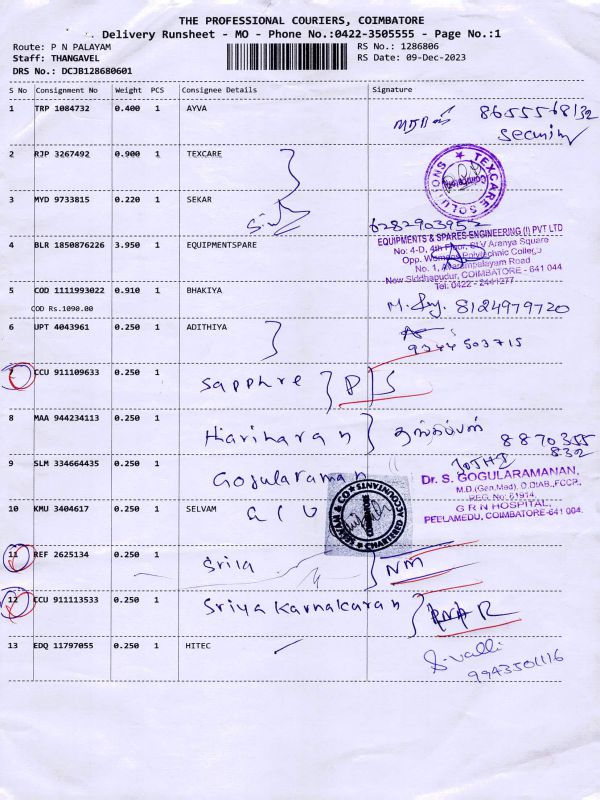 THE PROFESSIONAL COURIERS, COIMBATORE
Delivery Runsheet - MO - Phone No.:0422-3505555 - Page No.:1
Route: P N PALAYAM
RS No.: 1286806
Staff: THANGAVEL
RS Date: 09-Dec-2023
DRS No.: DCJB128680601
S No Consignment No Weight PCS Consignee Details Signature
1 TRP 1084732 0.400 1 AYVA
8655568132
Security
2 RJP 3267492 0.900 1 TEXCARE
TEXCARE SOLUTIONS
3 MYD 9733815 0.220 1 SEKAR
6282903952
4 BLR 1850876226 3.950 1 EQUIPMENTSPARE
EQUIPMENTS & SPARES ENGINEERING (I) PVT LTD
No: 4-D, 4th Floor, Aranya Square
Opp. Womens Polytechnic College
No. 1, Avarampalayam Road
New Siddhapudur, COIMBATORE - 641 044
Tel: 0422 - 2441277
5 COD 1111993022 0.910 1 BHAKIYA
COD Rs.1090.00
8124979720
6 UPT 4043961 0.250 1 ADITHIYA
9344503715
7 CCU 911109633 0.250 1 Sapphre P/S
8 MAA 944234113 0.250 1 Hariharan
8870355
832
9 SLM 334664435 0.250 1 Gogularaman
JOTHI
Dr. S. GOGULARAMANAN,
M.D.(Gen.Med), D.DIAB.,FCCP.,
REG. No: 61914,
G R N HOSPITAL,
PEELAMEDU, COIMBATORE-641 004.
10 KMU 3404617 0.250 1 SELVAM
CHARTERED ACCOUNTANTS
11 REF 2625134 0.250 1 Srila NM
12 CCU 911113533 0.250 1 Sriya Karnakaran
13 EDQ 11797055 0.250 1 HITEC
S. valli
9943501116